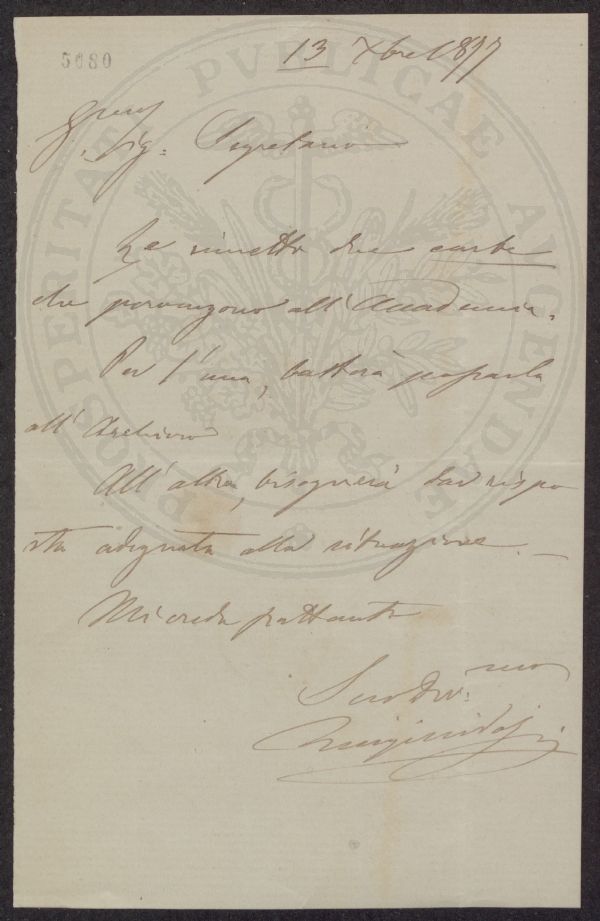 5080
13 Xbre 1877
Sig: Segretario
Le rimetto due carte
che pervengono all'Accademia.
Per l'una, basterà passarla
all'Archivio
All'altra, bisognerà dar rispo
sta adeguata alla situazione.
Mi creda frattanto
Suo Dev:mo
PROSPERITATI PVBLICAE AVGENDAE